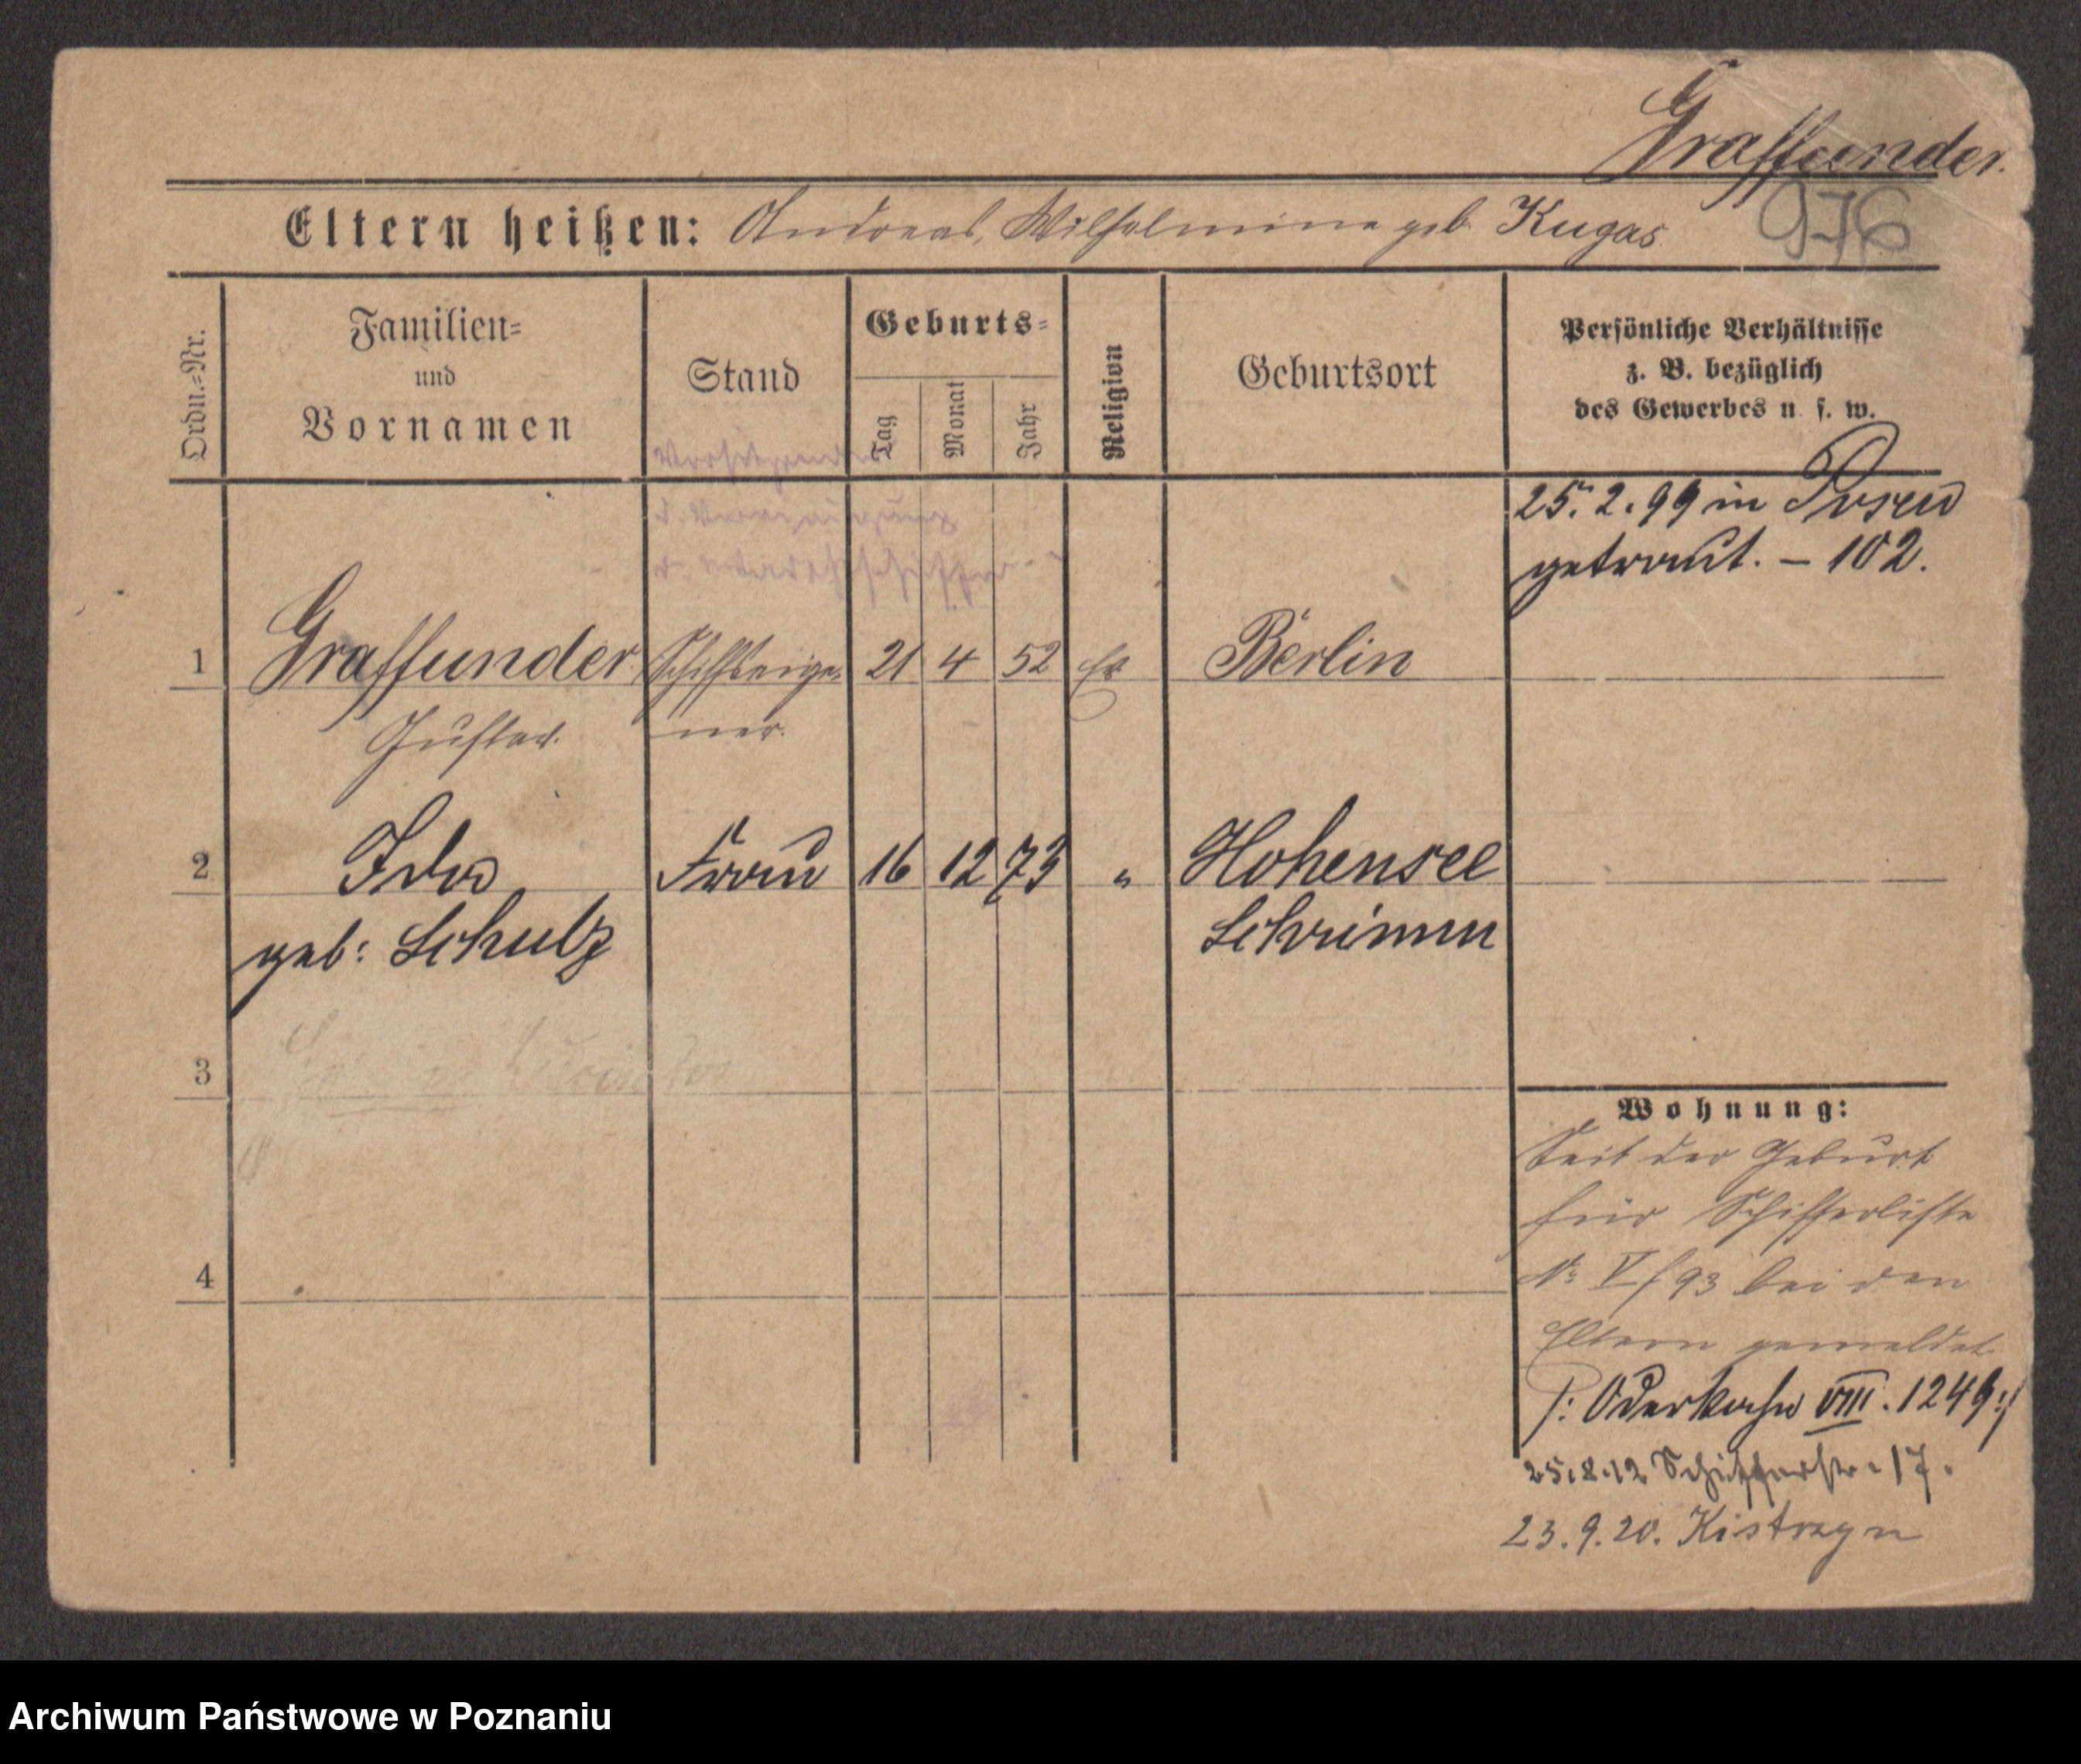 Graffunder.
976
Eltern heißen: Andreas, Wilhelmine geb. Kugas
Ordn.=Nr.
Familien=
und
Vornamen
Stand
Geburts=
Tag
Monat
Jahr
Religion
Geburtsort
Persönliche Verhältnisse
z. B. bezüglich
des Gewerbes u. s. w.
Vorsitzender
d. Vereinigung
d. Wartheschiffer
25.2.99 in Posen
getraut. – 102.
1 Graffunder Schiffseige- 21 4 52 Ev Berlin
Gustav. ner.
2 Ida Frau 16 12 73 " Hohensee
geb: Schulz Schrimm
3
4
Wohnung:
Seit der Geburt
für Schifferliste
No V/93 bei den
Eltern gemeldet
/: Oderkahn VIII. 1249:/
25.8.12 Schifferstr. 17.
23.9.20. Kistrzyn
Archiwum Państwowe w Poznaniu